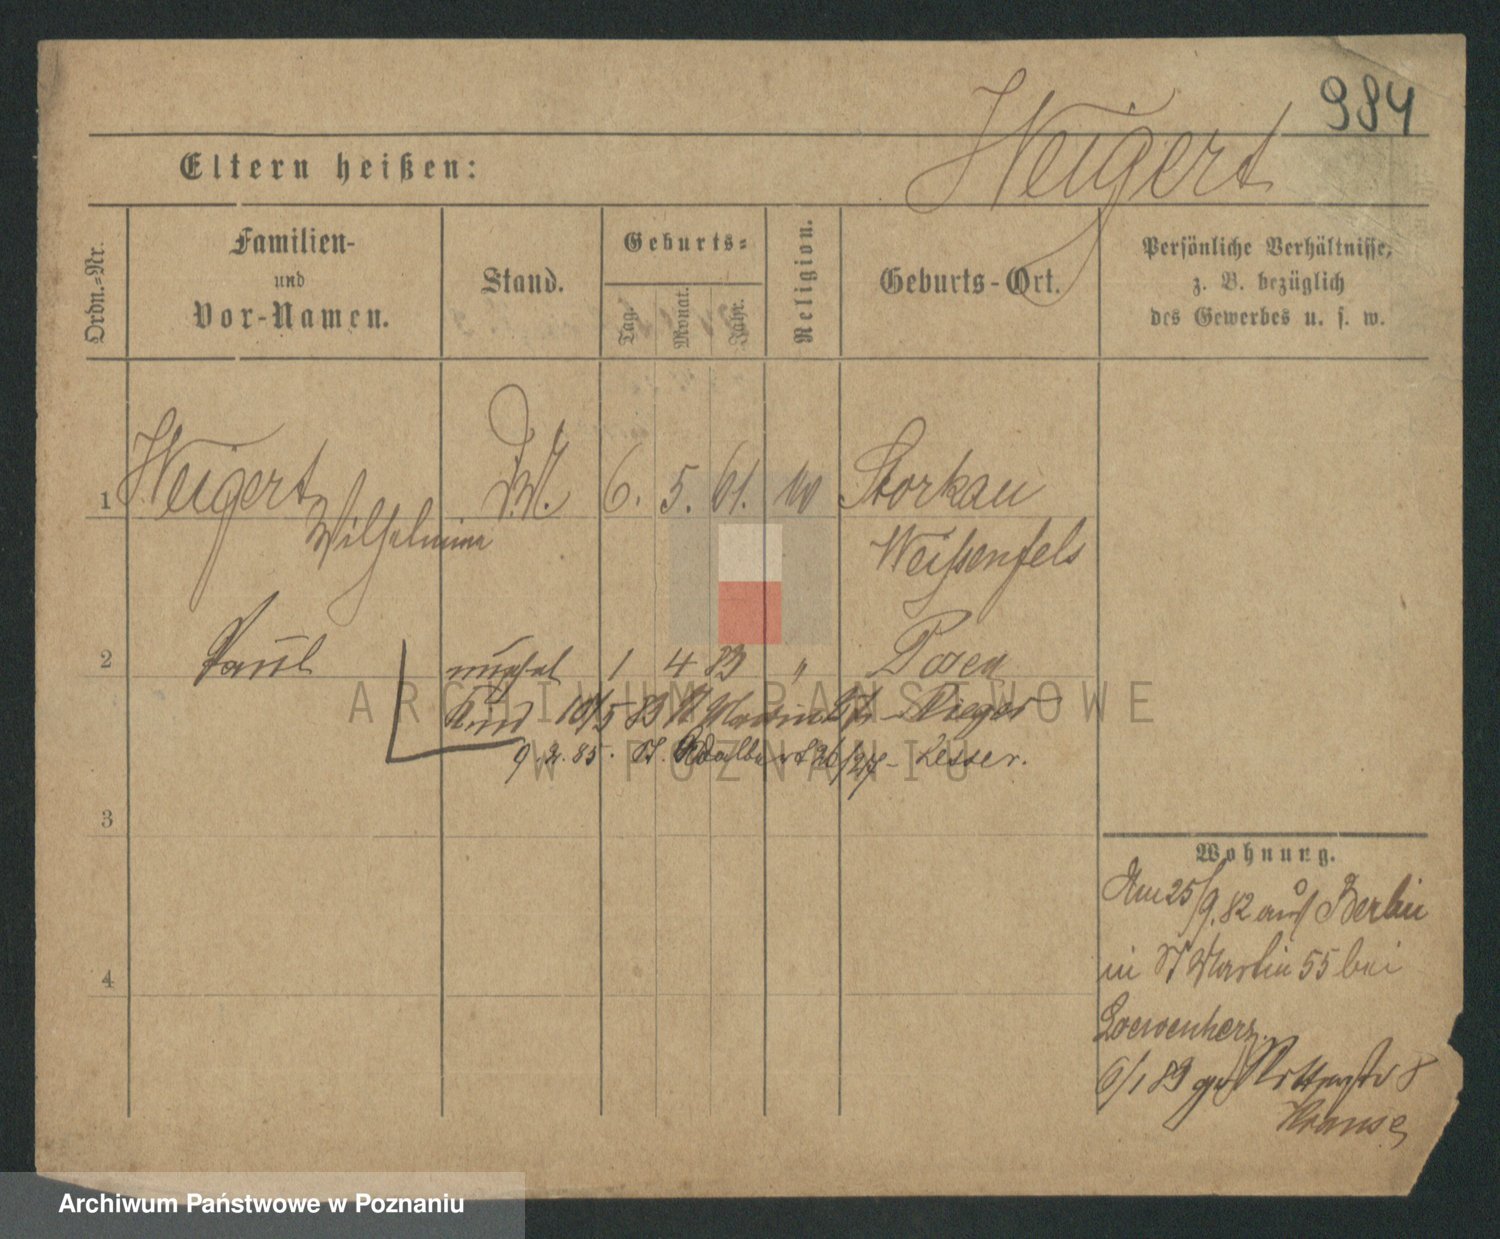 984
Weigert
Eltern heißen:
Ordn.-Nr.
Familien-
und
Vor-Namen.
Stand.
Geburts-
Tag.
Monat.
Jahr.
Religion.
Geburts-Ort.
Persönliche Verhältnisse,
z. B. bezüglich
des Gewerbes u. s. w.
1 Weigert 6. 5. 61. Storkau
Wilhelmine Weißenfels
2 Paul 1 4 83 " Posen
Kind 10/5 83 St Martin 27 - Rieger
9. 2. 85. St. Adalbert 26/27 - Lesser.
3
4
Wohnung.
Am 25/9.82 auß Berlin
in St Martin 55 bei
Loewenherz.
6/1 83 Ritterstr 8
Krause
ARCHIWUM PAŃSTWOWE
W POZNANIU
Archiwum Państwowe w Poznaniu